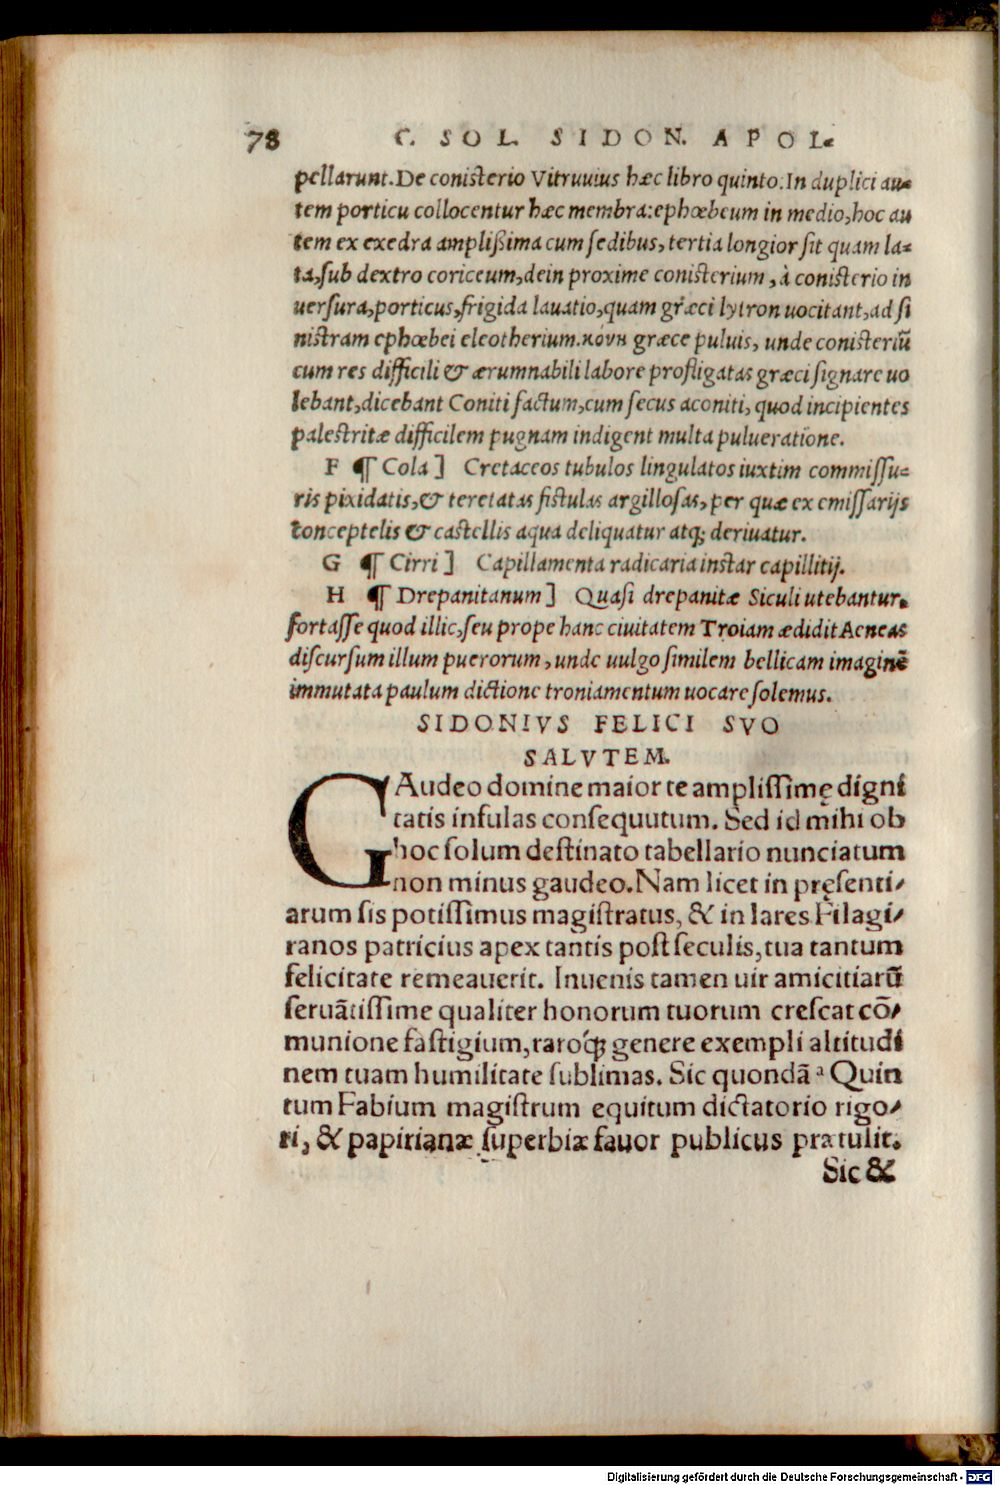 78 C. SOL. SIDON. APOL.
pellarunt. De conisterio Vitruuius hæc libro quinto. In duplici au=
tem porticu collocentur hæc membra: ephœbeum in medio, hoc au
tem ex exedra amplißima cum sedibus, tertia longior sit quam la=
ta, sub dextro coriceum, dein proxime conisterium, à conisterio in
uersura, porticus, frigida lauatio, quam græci lytron uocitant, ad si
nistram ephœbei eleotherium. κόνη græce puluis, unde conisteriū
cum res difficili & ærumnabili labore profligatas græci signare uo
lebant, dicebant Coniti factum, cum secus aconiti, quod incipientes
palestritæ difficilem pugnam indigent multa pulueratione.
F ¶ Cola ] Cretaceos tubulos lingulatos iuxtim commissu=
ris pixidatis, & teretatas fistulas argillosas, per quæ ex emissarijs
conceptelis & castellis aqua deliquatur atq; deriuatur.
G ¶ Cirri ] Capillamenta radicaria instar capillitij.
H ¶ Drepanitanum ] Quasi drepanitæ Siculi utebantur.
fortasse quod illic, seu prope hanc ciuitatem Troiam ædidit Aeneas
discursum illum puerorum, unde uulgo similem bellicam imaginē
immutata paulum dictione troniamentum uocare solemus.
SIDONIVS FELICI SVO
SALVTEM.
GAudeo domine maior te amplissimę digni
tatis infulas consequutum. Sed id mihi ob
hoc solum destinato tabellario nunciatum
non minus gaudeo. Nam licet in pręsenti/
arum sis potissimus magistratus, & in lares Filagi/
ranos patricius apex tantis post seculis, tua tantum
felicitate remeauerit. Inuenis tamen uir amicitiarū
seruātissime qualiter honorum tuorum crescat cō/
munione fastigium, raróq; genere exempli altitudi
nem tuam humilitate sublimas. Sic quondā ᵃ Quin
tum Fabium magistrum equitum dictatorio rigo/
ri, & papirianæ superbiæ fauor publicus prætulit.
Sic &
Digitalisierung gefördert durch die Deutsche Forschungsgemeinschaft - DFG